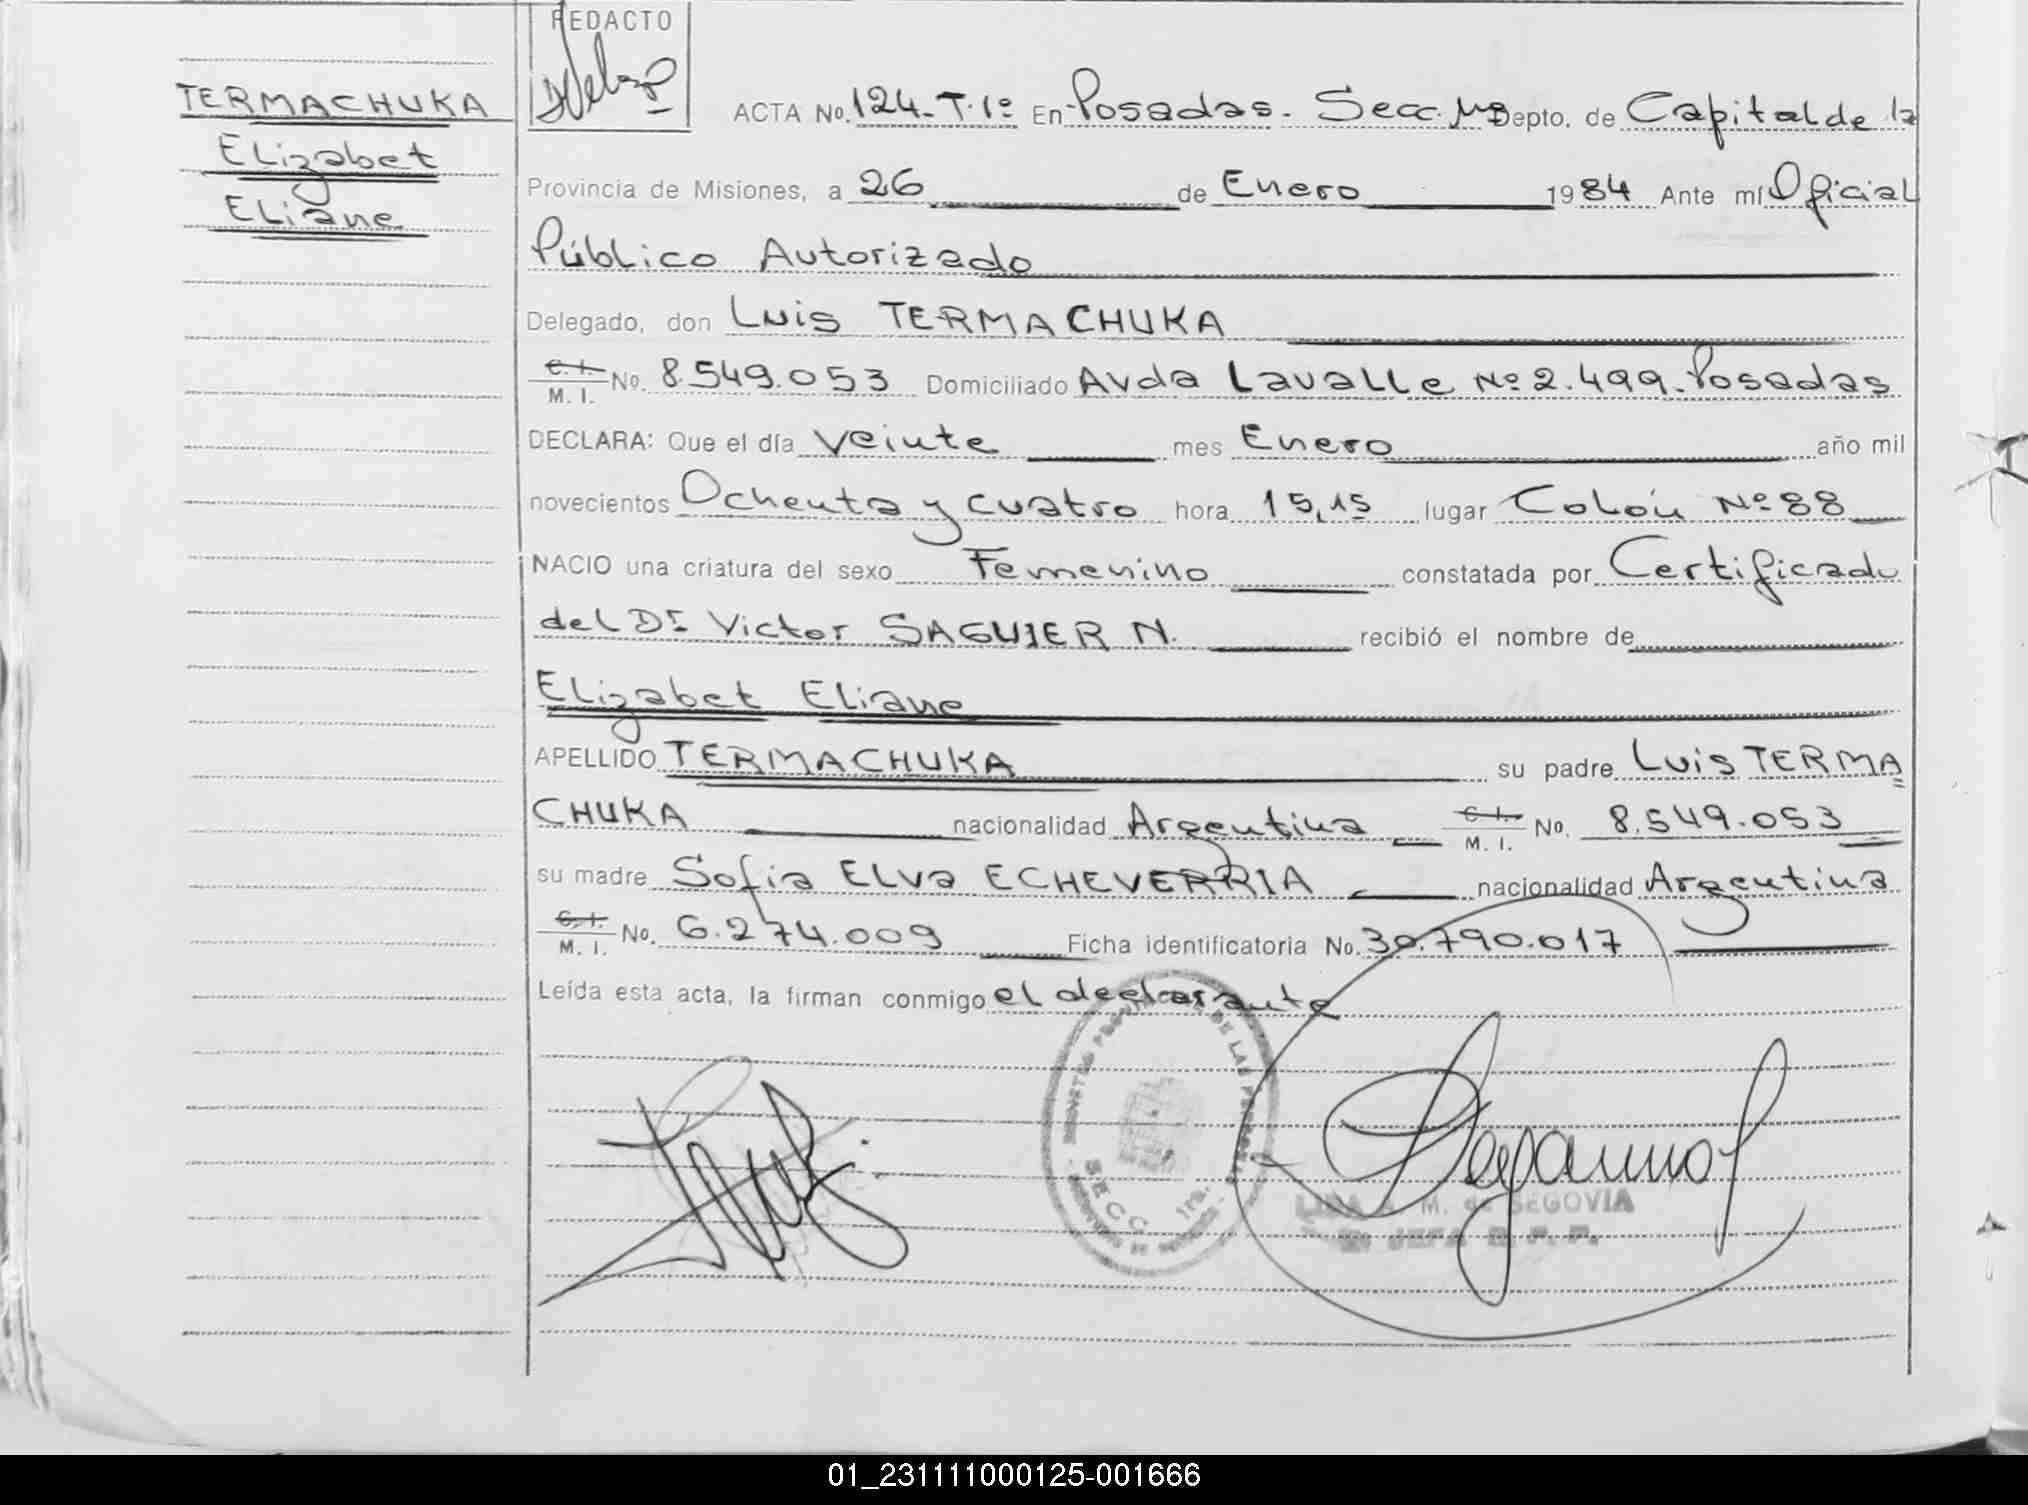 REDACTO
TERMACHUKA
Elizabet
Eliane
ACTA No. 124-T.1º En Posadas. Secc. Depto. de Capital de la
Provincia de Misiones, a 26 de Enero 1984 Ante mí Oficial
Público Autorizado
Delegado, don Luis TERMACHUKA
C. I. M. I. No. 8.549.053 Domiciliado Avda Lavalle Nº 2.499. Posadas
DECLARA: Que el día veinte mes Enero año mil
novecientos Ochenta y cuatro hora 15,15 lugar Colón Nº 88
NACIO una criatura del sexo Femenino constatada por Certificado
del Dr Victor SAGUIER N. recibió el nombre de
Elizabet Eliane
APELLIDO TERMACHUKA su padre Luis TERMA
CHUKA nacionalidad Argentina C. I. M. I. No. 8.549.053
su madre Sofia Elva ECHEVERRIA nacionalidad Argentina
C. I. M. I. No. 6.274.009 Ficha identificatoria No. 30.790.017
Leída esta acta, la firman conmigo el declarante
SECC. 1ra.
M. de SEGOVIA
JEFA R. P. P.
01_231111000125-001666